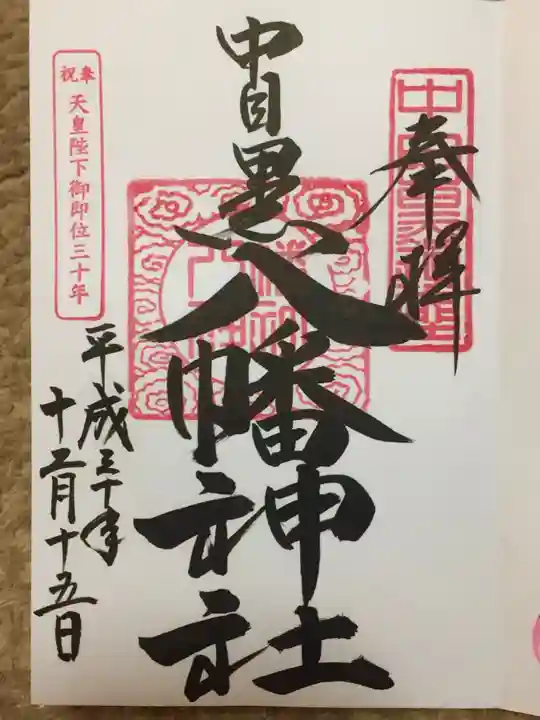 奉拝
中目黒八幡神社
奉祝 天皇陛下御即位三十年
平成三十年
十二月十五日